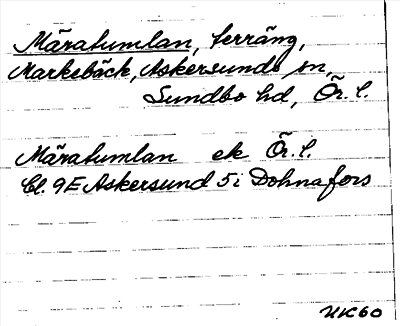 Märatumlan, terräng,
Markebäck, Askersunds sn,
Sundbo hd, Ör. l.
Märatumlan ek Ör. l.
Bl. 9E Askersund 5i Dohnafors
UK60